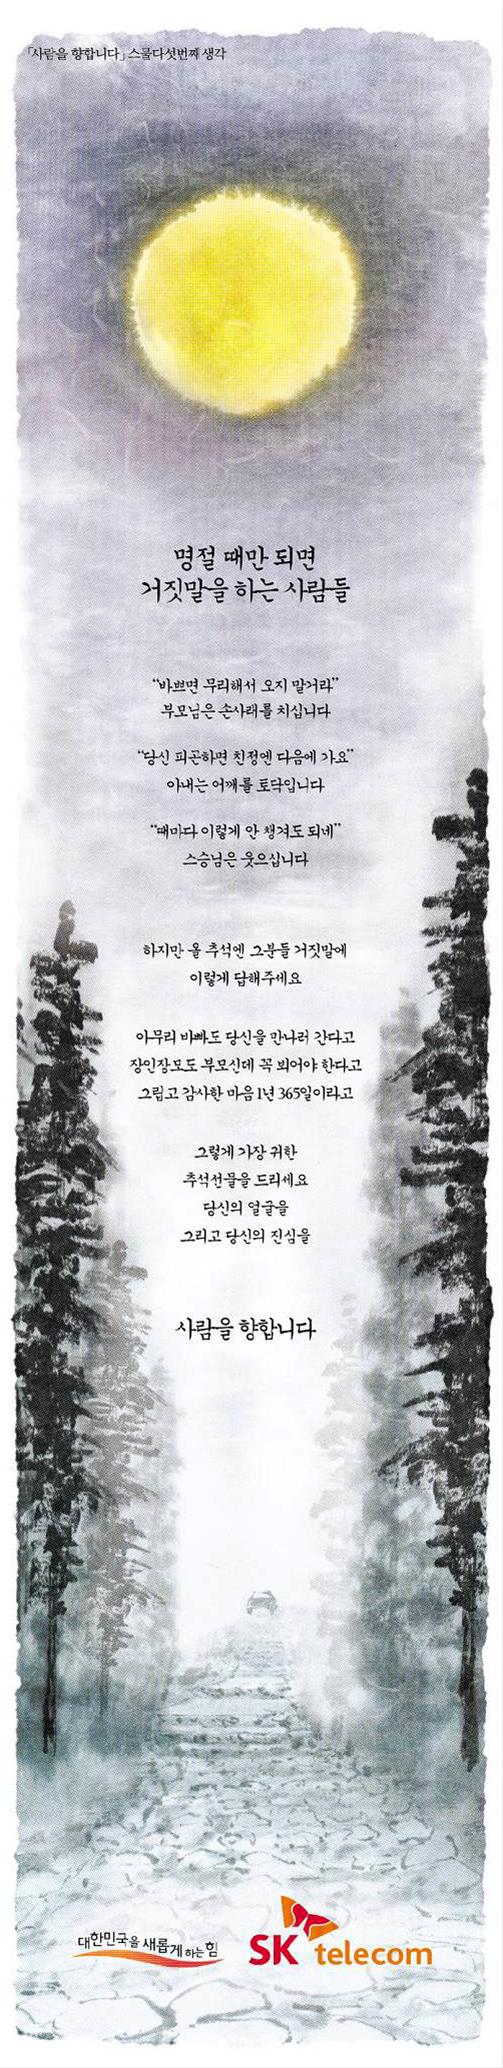 「사람을 향합니다」 스물다섯번째 생각
명절 때만 되면
거짓말을 하는 사람들
“바쁘면 무리해서 오지 말거라”
부모님은 손사래를 치십니다
“당신 피곤하면 친정엔 다음에 가요”
아내는 어깨를 토닥입니다
“때마다 이렇게 안 챙겨도 되네”
스승님은 웃으십니다
하지만 올 추석엔 그분들 거짓말에
이렇게 답해주세요
아무리 바빠도 당신을 만나러 간다고
장인장모도 부모신데 꼭 뵈어야 한다고
그립고 감사한 마음 1년 365일이라고
그렇게 가장 귀한
추석선물을 드리세요
당신의 얼굴을
그리고 당신의 진심을
사람을 향합니다
대한민국을 새롭게 하는 힘
SK telecom